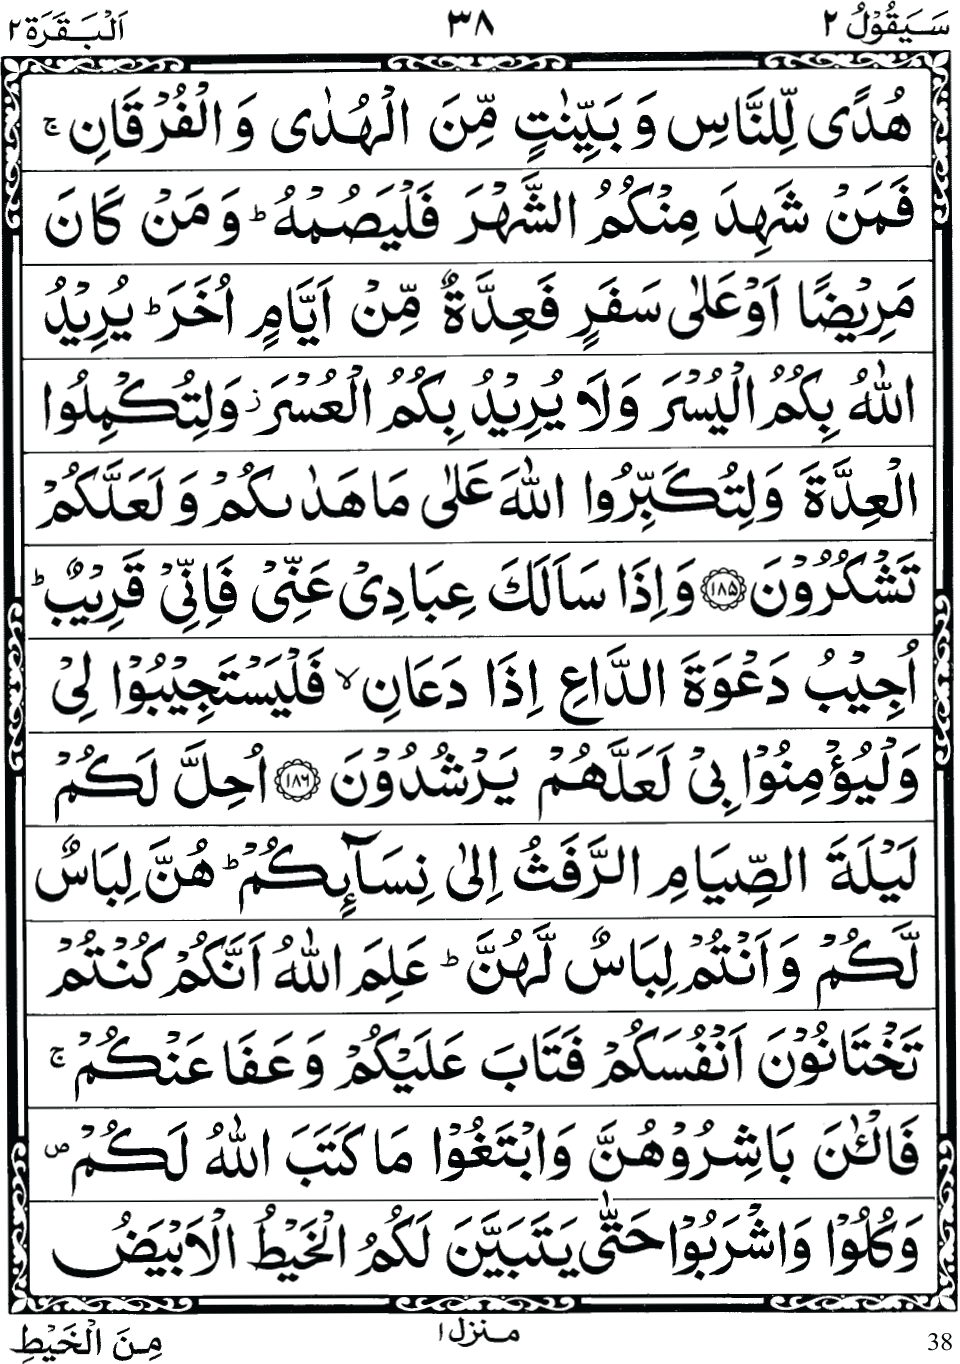 سَيَقُوْلُ ٢
٣٨
اَلْبَقَرَة ٢
هُدًى لِّلنَّاسِ وَ بَيِّنٰتٍ مِّنَ الْهُدٰى وَ الْفُرْقَانِ ۚ
فَمَنْ شَهِدَ مِنْكُمُ الشَّهْرَ فَلْيَصُمْهُ ؕ وَ مَنْ كَانَ
مَرِيْضًا اَوْ عَلٰى سَفَرٍ فَعِدَّةٌ مِّنْ اَيَّامٍ اُخَرَ ؕ يُرِيْدُ
اللّٰهُ بِكُمُ الْيُسْرَ وَلَا يُرِيْدُ بِكُمُ الْعُسْرَ ز وَلِتُكْمِلُوا
الْعِدَّةَ وَلِتُكَبِّرُوا اللّٰهَ عَلٰى مَا هَدٰىكُمْ وَ لَعَلَّكُمْ
تَشْكُرُوْنَ ﴿١٨٥﴾ وَاِذَا سَاَلَكَ عِبَادِيْ عَنِّيْ فَاِنِّيْ قَرِيْبٌ ؕ
اُجِيْبُ دَعْوَةَ الدَّاعِ اِذَا دَعَانِ ۙ فَلْيَسْتَجِيْبُوْا لِيْ
وَلْيُؤْمِنُوْا بِيْ لَعَلَّهُمْ يَرْشُدُوْنَ ﴿١٨٦﴾ اُحِلَّ لَكُمْ
لَيْلَةَ الصِّيَامِ الرَّفَثُ اِلٰى نِسَآىِٕكُمْ ؕ هُنَّ لِبَاسٌ
لَّكُمْ وَ اَنْتُمْ لِبَاسٌ لَّهُنَّ ؕ عَلِمَ اللّٰهُ اَنَّكُمْ كُنْتُمْ
تَخْتَانُوْنَ اَنْفُسَكُمْ فَتَابَ عَلَيْكُمْ وَ عَفَا عَنْكُمْ ۚ
فَالْـٰٔنَ بَاشِرُوْهُنَّ وَابْتَغُوْا مَا كَتَبَ اللّٰهُ لَكُمْ ص
وَكُلُوْا وَاشْرَبُوْا حَتّٰى يَتَبَيَّنَ لَكُمُ الْخَيْطُ الْاَبْيَضُ
مِنَ الْخَيْطِ
منزل ١
38